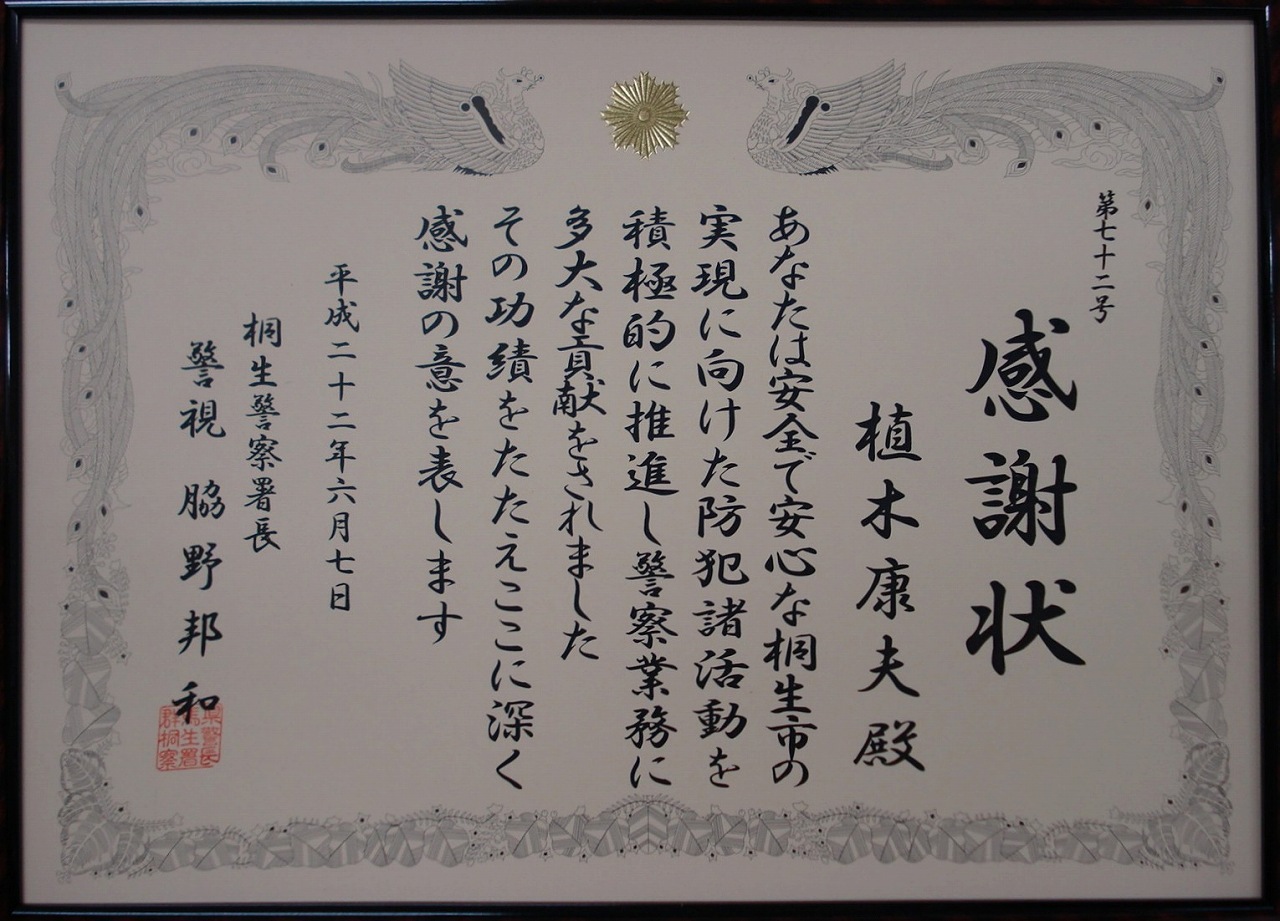 第七十二号
感謝状
植木康夫殿
あなたは安全で安心な桐生市の
実現に向けた防犯諸活動を
積極的に推進し警察業務に
多大な貢献をされました
その功績をたたえここに深く
感謝の意を表します
平成二十二年六月七日
桐生警察署長
警視 脇野邦和